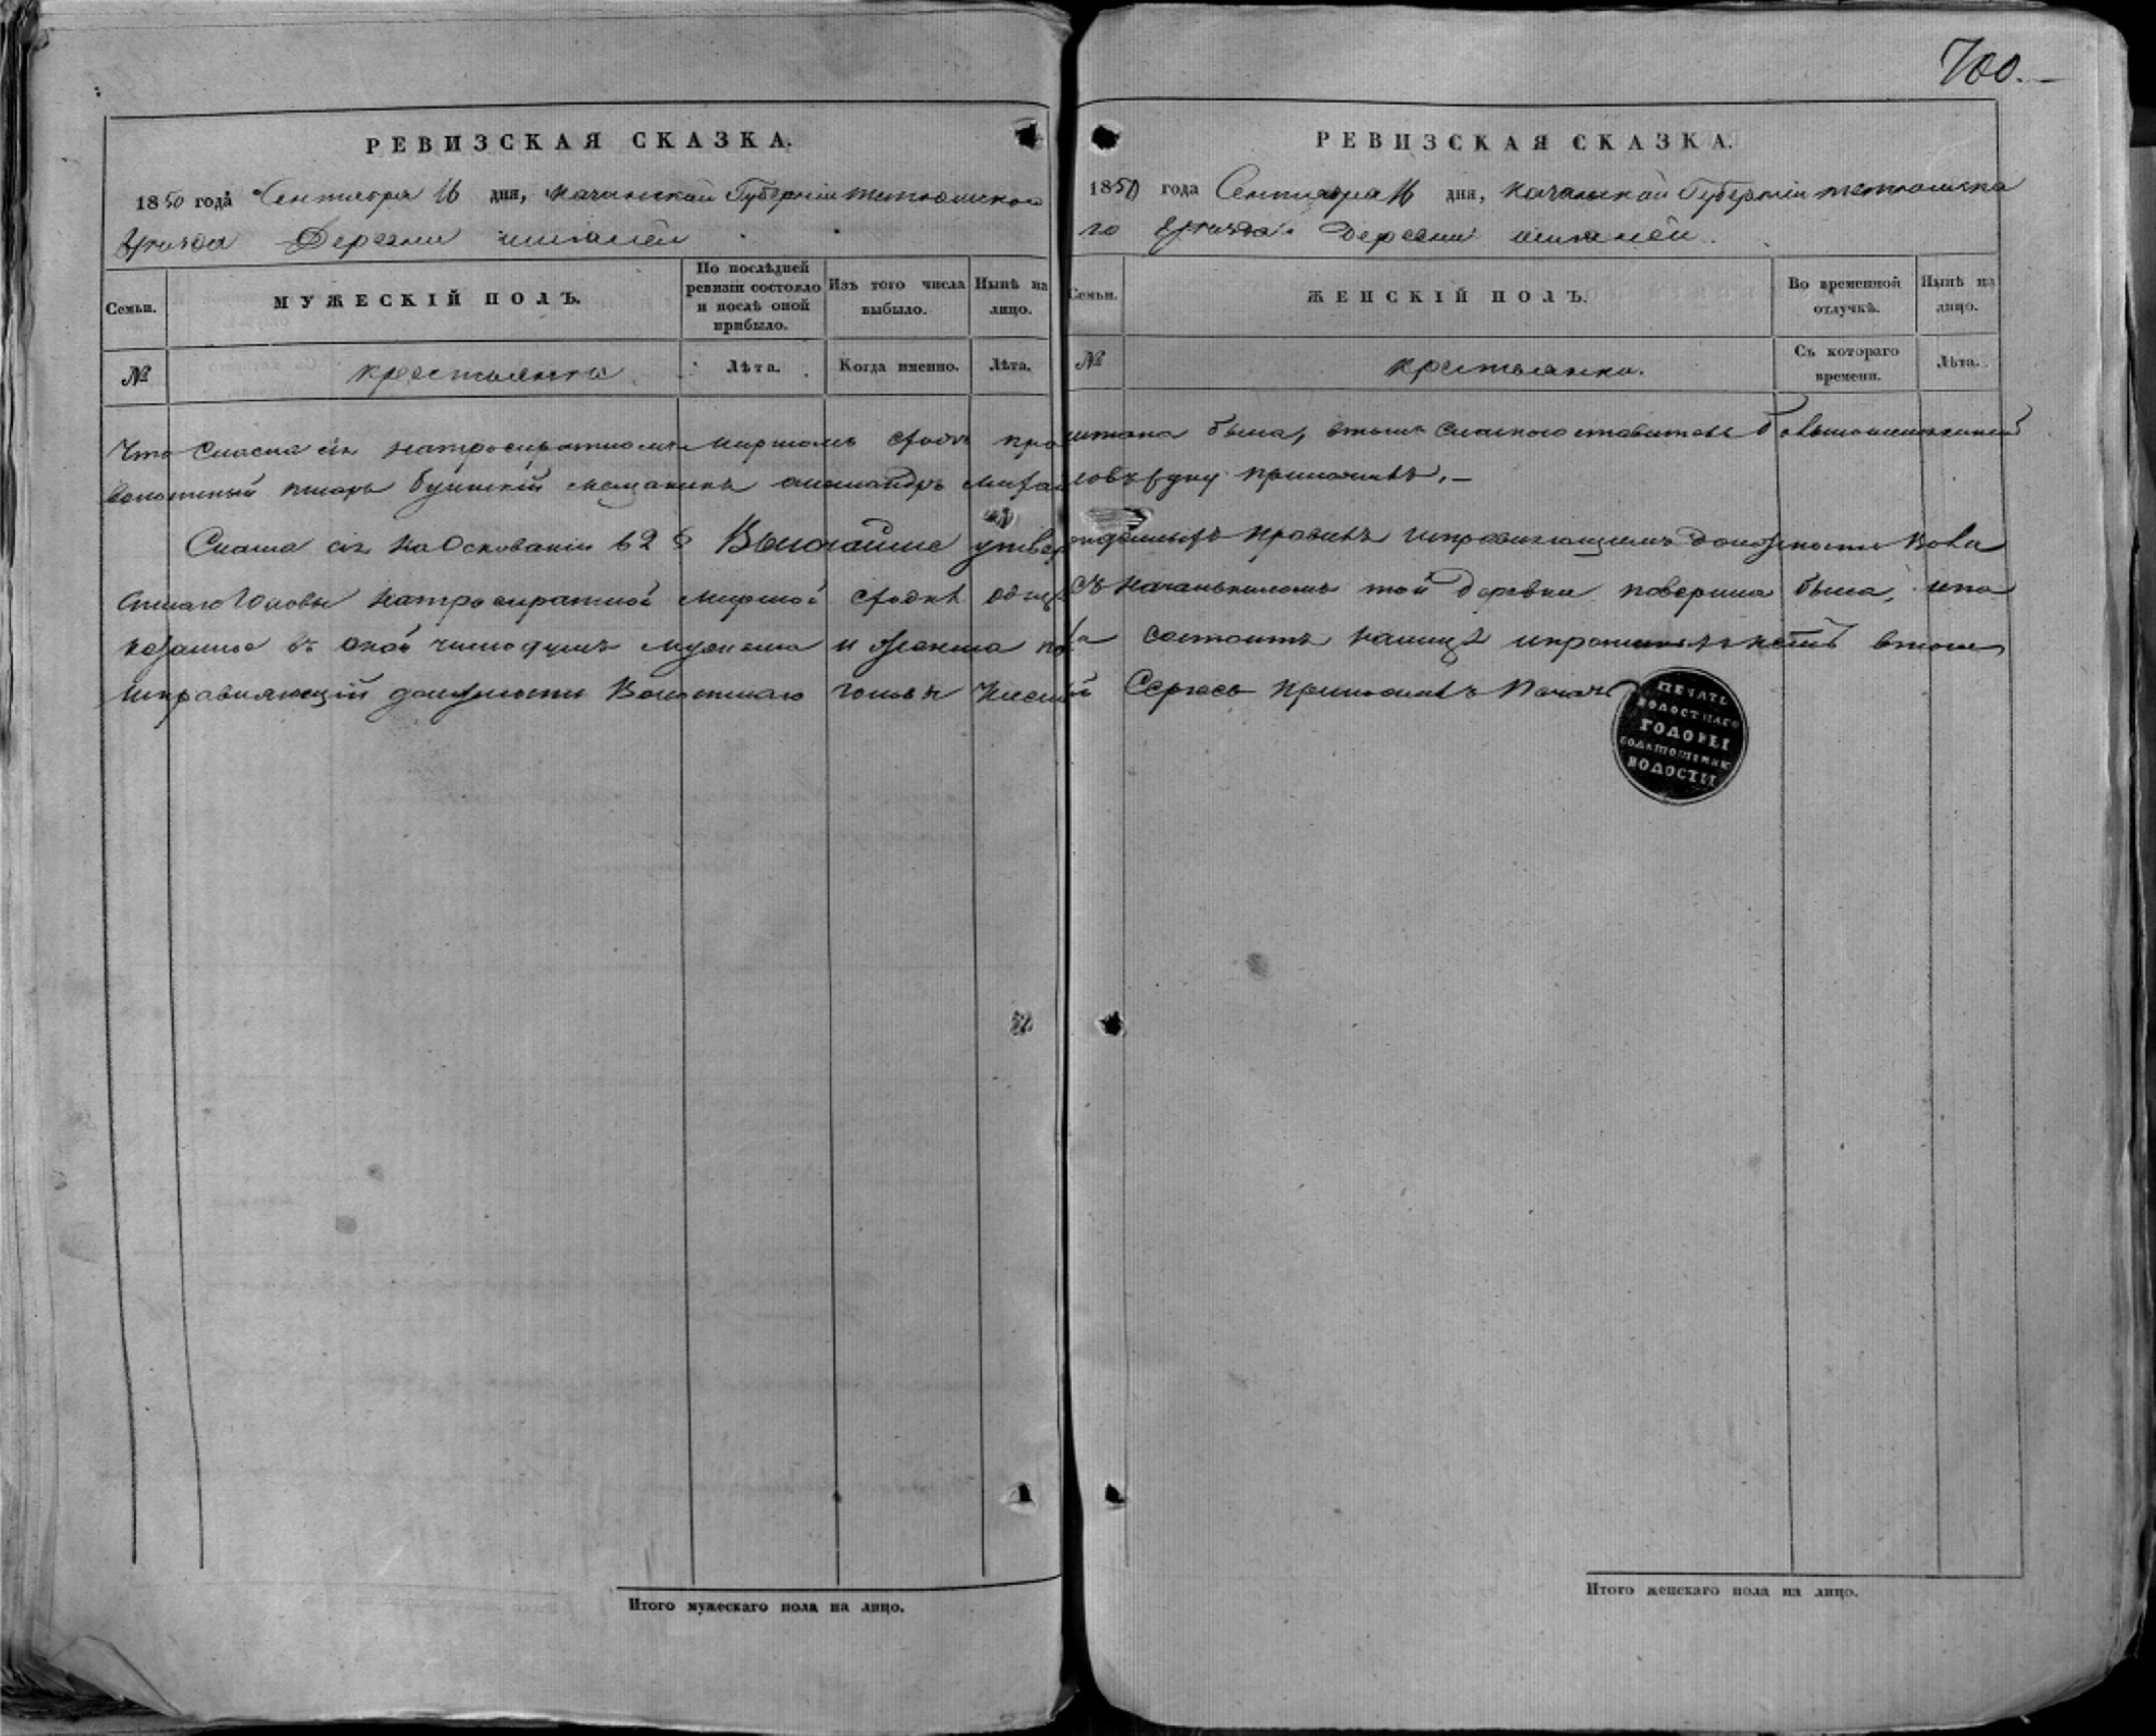 700.
РЕВИЗСКАЯ СКАЗКА.
1850 года Сентября 16 дня, Казанской Губернии Тетюшскаго
Уѣзда Деревни
МУЖЕСКІЙ ПОЛЪ.
Семьи.
По послѣдней ревизіи состояло и послѣ оной прибыло.
Изъ того числа выбыло.
Нынѣ на лицо.
№
крестьянъ
Лѣта.
Когда именно.
Лѣта.
РЕВИЗСКАЯ СКАЗКА.
1850 года Сентября 16 дня, Казанской Губерніи Тетюшска
го Уѣзда Деревни
Семьи.
ЖЕНСКІЙ ПОЛЪ.
Во временной отлучкѣ.
Нынѣ на лицо.
№
крестьянки.
Съ котораго времени.
Лѣта.
Что сказка сія на мирскомъ сходѣ прочитана была, въ томъ
волостный писарь Буинскій мещанинъ Александръ руку приложилъ.
Сказка сія на Основаніи 62 § Высочайше утвержденныхъ правилъ исправляющимъ должность Воло
стнаго Головы на мирской сходкѣ съ начальникомъ той деревни повѣрена была, и по
казанное въ оной число душъ мужеска и женска пола состоитъ на лицо и нѣтъ въ томъ
исправляющій должность Волостнаго Головы Сергеевъ приложилъ Печать
ПЕЧАТЬ
ВОЛОСТНАГО
ГОЛОВЫ
ВОЛОСТИ
Итого мужескаго пола на лицо.
Итого женскаго пола на лицо.